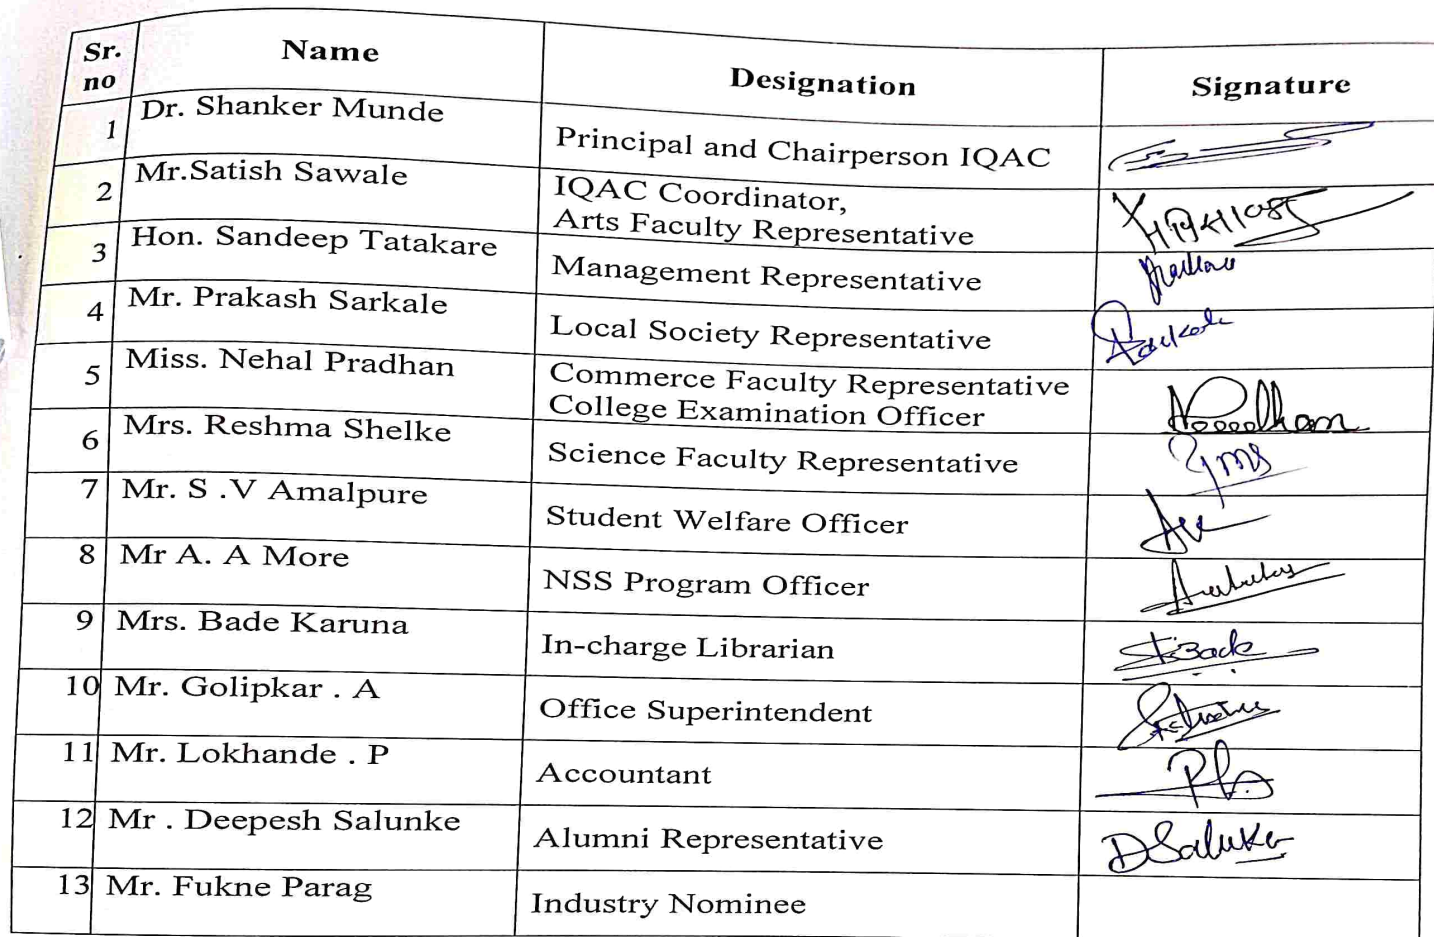 Sr. no Name Designation Signature
1 Dr. Shanker Munde Principal and Chairperson IQAC
2 Mr.Satish Sawale IQAC Coordinator,
Arts Faculty Representative
3 Hon. Sandeep Tatakare Management Representative
4 Mr. Prakash Sarkale Local Society Representative
5 Miss. Nehal Pradhan Commerce Faculty Representative
College Examination Officer
6 Mrs. Reshma Shelke Science Faculty Representative
7 Mr. S .V Amalpure Student Welfare Officer
8 Mr A. A More NSS Program Officer
9 Mrs. Bade Karuna In-charge Librarian
10 Mr. Golipkar . A Office Superintendent
11 Mr. Lokhande . P Accountant
12 Mr . Deepesh Salunke Alumni Representative
13 Mr. Fukne Parag Industry Nominee